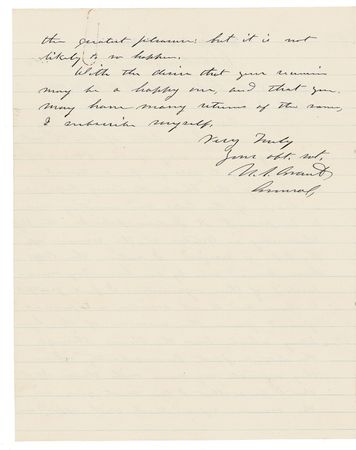 the greatest pleasure; but it is not
likely to so happen.
With the desire that your reunion
may be a happy one, and that you
may have many returns of the same,
I subscribe myself,
Very Truly
Your obt. svt.
U. S. Grant
General,